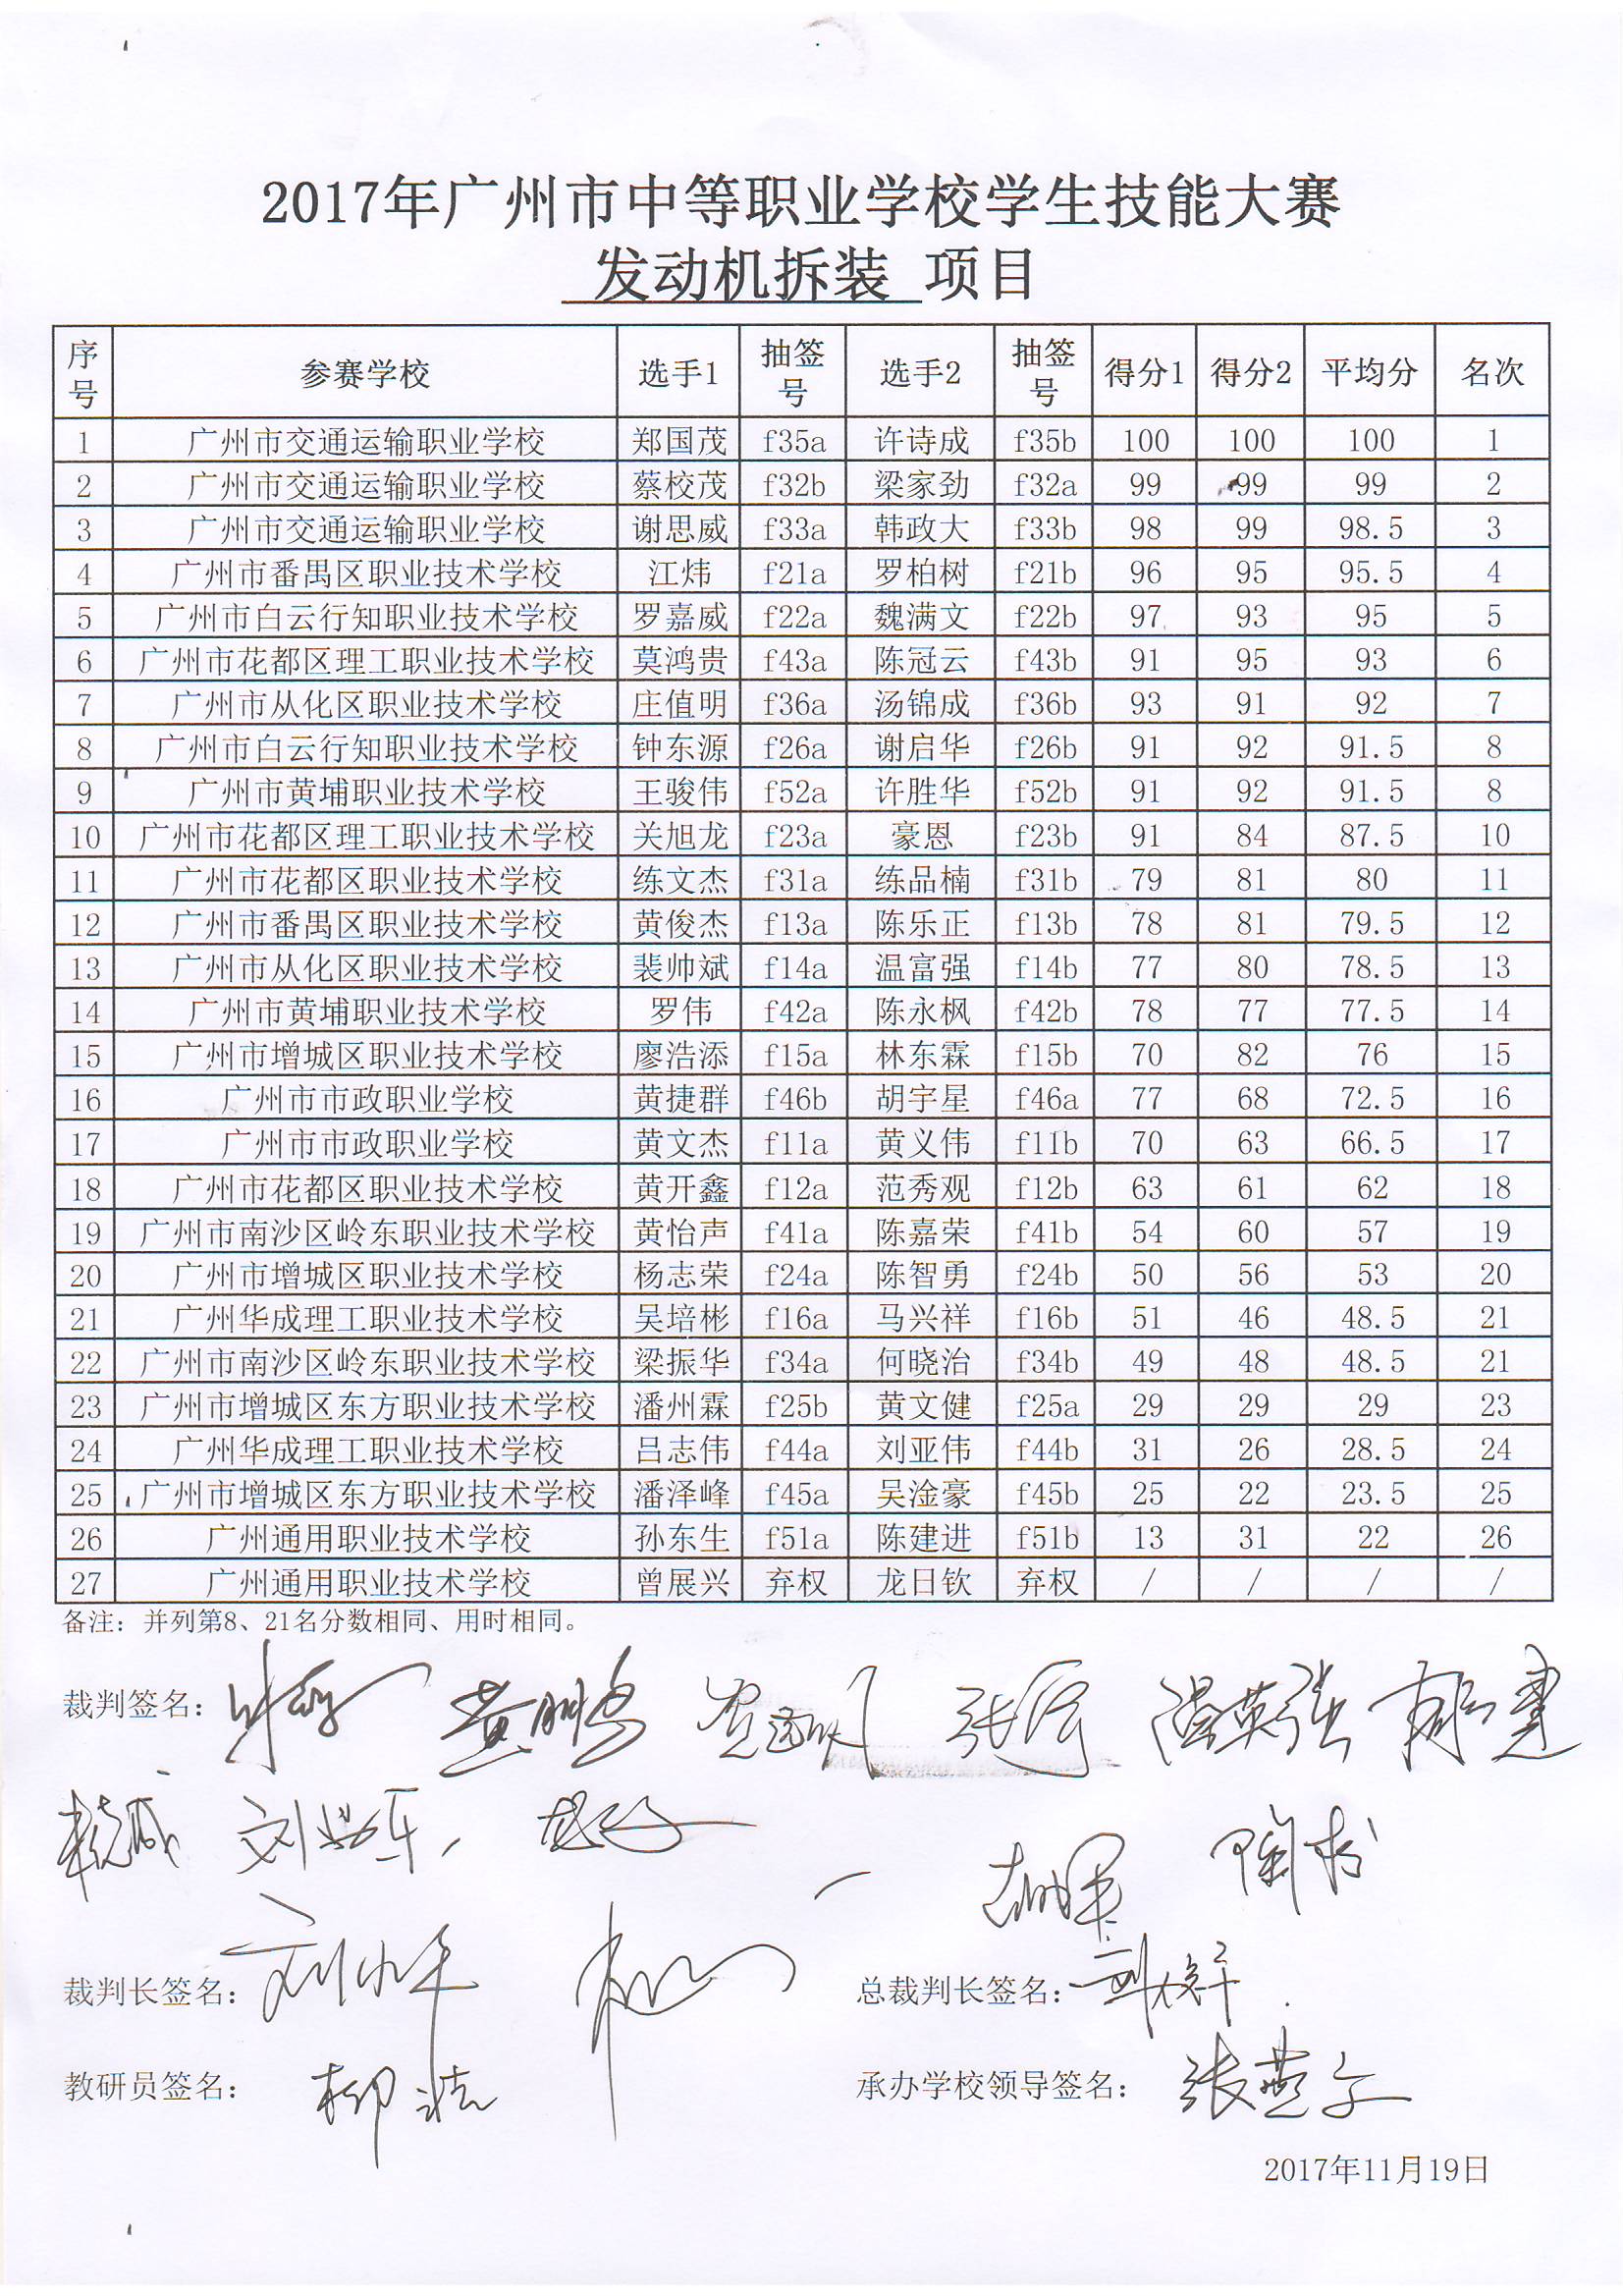 2017年广州市中等职业学校学生技能大赛
发动机拆装 项目
序号 参赛学校 选手1 抽签号 选手2 抽签号 得分1 得分2 平均分 名次
1 广州市交通运输职业学校 郑国茂 f35a 许诗成 f35b 100 100 100 1
2 广州市交通运输职业学校 蔡校茂 f32b 梁家劲 f32a 99 99 99 2
3 广州市交通运输职业学校 谢思威 f33a 韩政大 f33b 98 99 98.5 3
4 广州市番禺区职业技术学校 江炜 f21a 罗柏树 f21b 96 95 95.5 4
5 广州市白云行知职业技术学校 罗嘉威 f22a 魏满文 f22b 97 93 95 5
6 广州市花都区理工职业技术学校 莫鸿贵 f43a 陈冠云 f43b 91 95 93 6
7 广州市从化区职业技术学校 庄值明 f36a 汤锦成 f36b 93 91 92 7
8 广州市白云行知职业技术学校 钟东源 f26a 谢启华 f26b 91 92 91.5 8
9 广州市黄埔职业技术学校 王骏伟 f52a 许胜华 f52b 91 92 91.5 8
10 广州市花都区理工职业技术学校 关旭龙 f23a 豪恩 f23b 91 84 87.5 10
11 广州市花都区职业技术学校 练文杰 f31a 练品楠 f31b 79 81 80 11
12 广州市番禺区职业技术学校 黄俊杰 f13a 陈乐正 f13b 78 81 79.5 12
13 广州市从化区职业技术学校 裴帅斌 f14a 温富强 f14b 77 80 78.5 13
14 广州市黄埔职业技术学校 罗伟 f42a 陈永枫 f42b 78 77 77.5 14
15 广州市增城区职业技术学校 廖浩添 f15a 林东霖 f15b 70 82 76 15
16 广州市市政职业学校 黄捷群 f46b 胡宇星 f46a 77 68 72.5 16
17 广州市市政职业学校 黄文杰 f11a 黄义伟 f11b 70 63 66.5 17
18 广州市花都区职业技术学校 黄开鑫 f12a 范秀观 f12b 63 61 62 18
19 广州市南沙区岭东职业技术学校 黄怡声 f41a 陈嘉荣 f41b 54 60 57 19
20 广州市增城区职业技术学校 杨志荣 f24a 陈智勇 f24b 50 56 53 20
21 广州华成理工职业技术学校 吴培彬 f16a 马兴祥 f16b 51 46 48.5 21
22 广州市南沙区岭东职业技术学校 梁振华 f34a 何晓治 f34b 49 48 48.5 21
23 广州市增城区东方职业技术学校 潘州霖 f25b 黄文健 f25a 29 29 29 23
24 广州华成理工职业技术学校 吕志伟 f44a 刘亚伟 f44b 31 26 28.5 24
25 广州市增城区东方职业技术学校 潘泽峰 f45a 吴淦豪 f45b 25 22 23.5 25
26 广州通用职业技术学校 孙东生 f51a 陈建进 f51b 13 31 22 26
27 广州通用职业技术学校 曾展兴 弃权 龙日钦 弃权 / / / /
备注：并列第8、21名分数相同、用时相同。
裁判签名： 黄鹏 温英强
裁判长签名： 总裁判长签名：
教研员签名： 柳洁 承办学校领导签名： 张燕
2017年11月19日